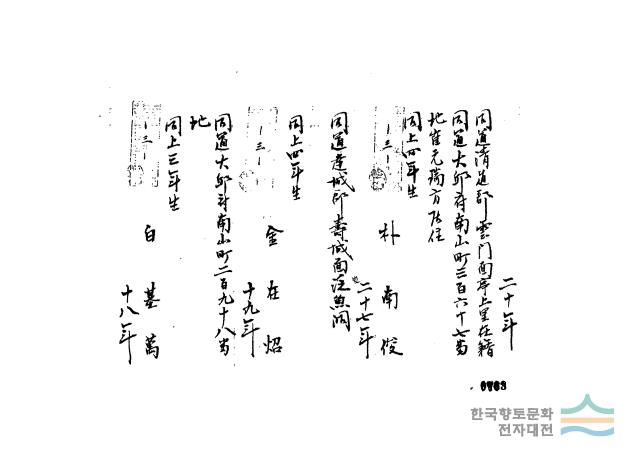 二十年
同道清道郡雲門面亭上里在籍
同道大邱府南山町三百六十七番
地崔元瑞方居住
同上四年生
朴南俊
二十七年
同道達城郡壽城面泛魚洞
同上四年生
金在炤
十九年
同道大邱府南山町二百九十八番
地
同上三年生
白基萬
十八年
0763
한국향토문화
전자대전